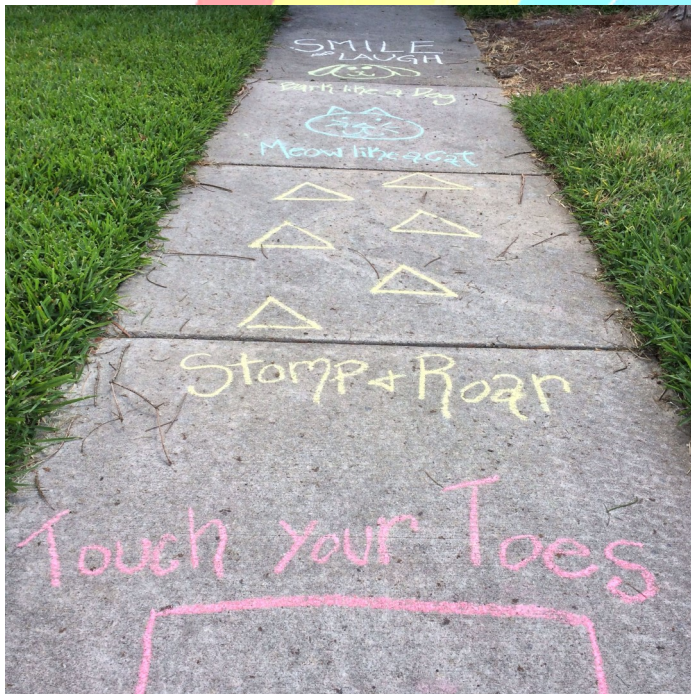 SMILE
& LAUGH
Bark like a Dog
Meow like a Cat
Stomp & Roar
Touch your Toes